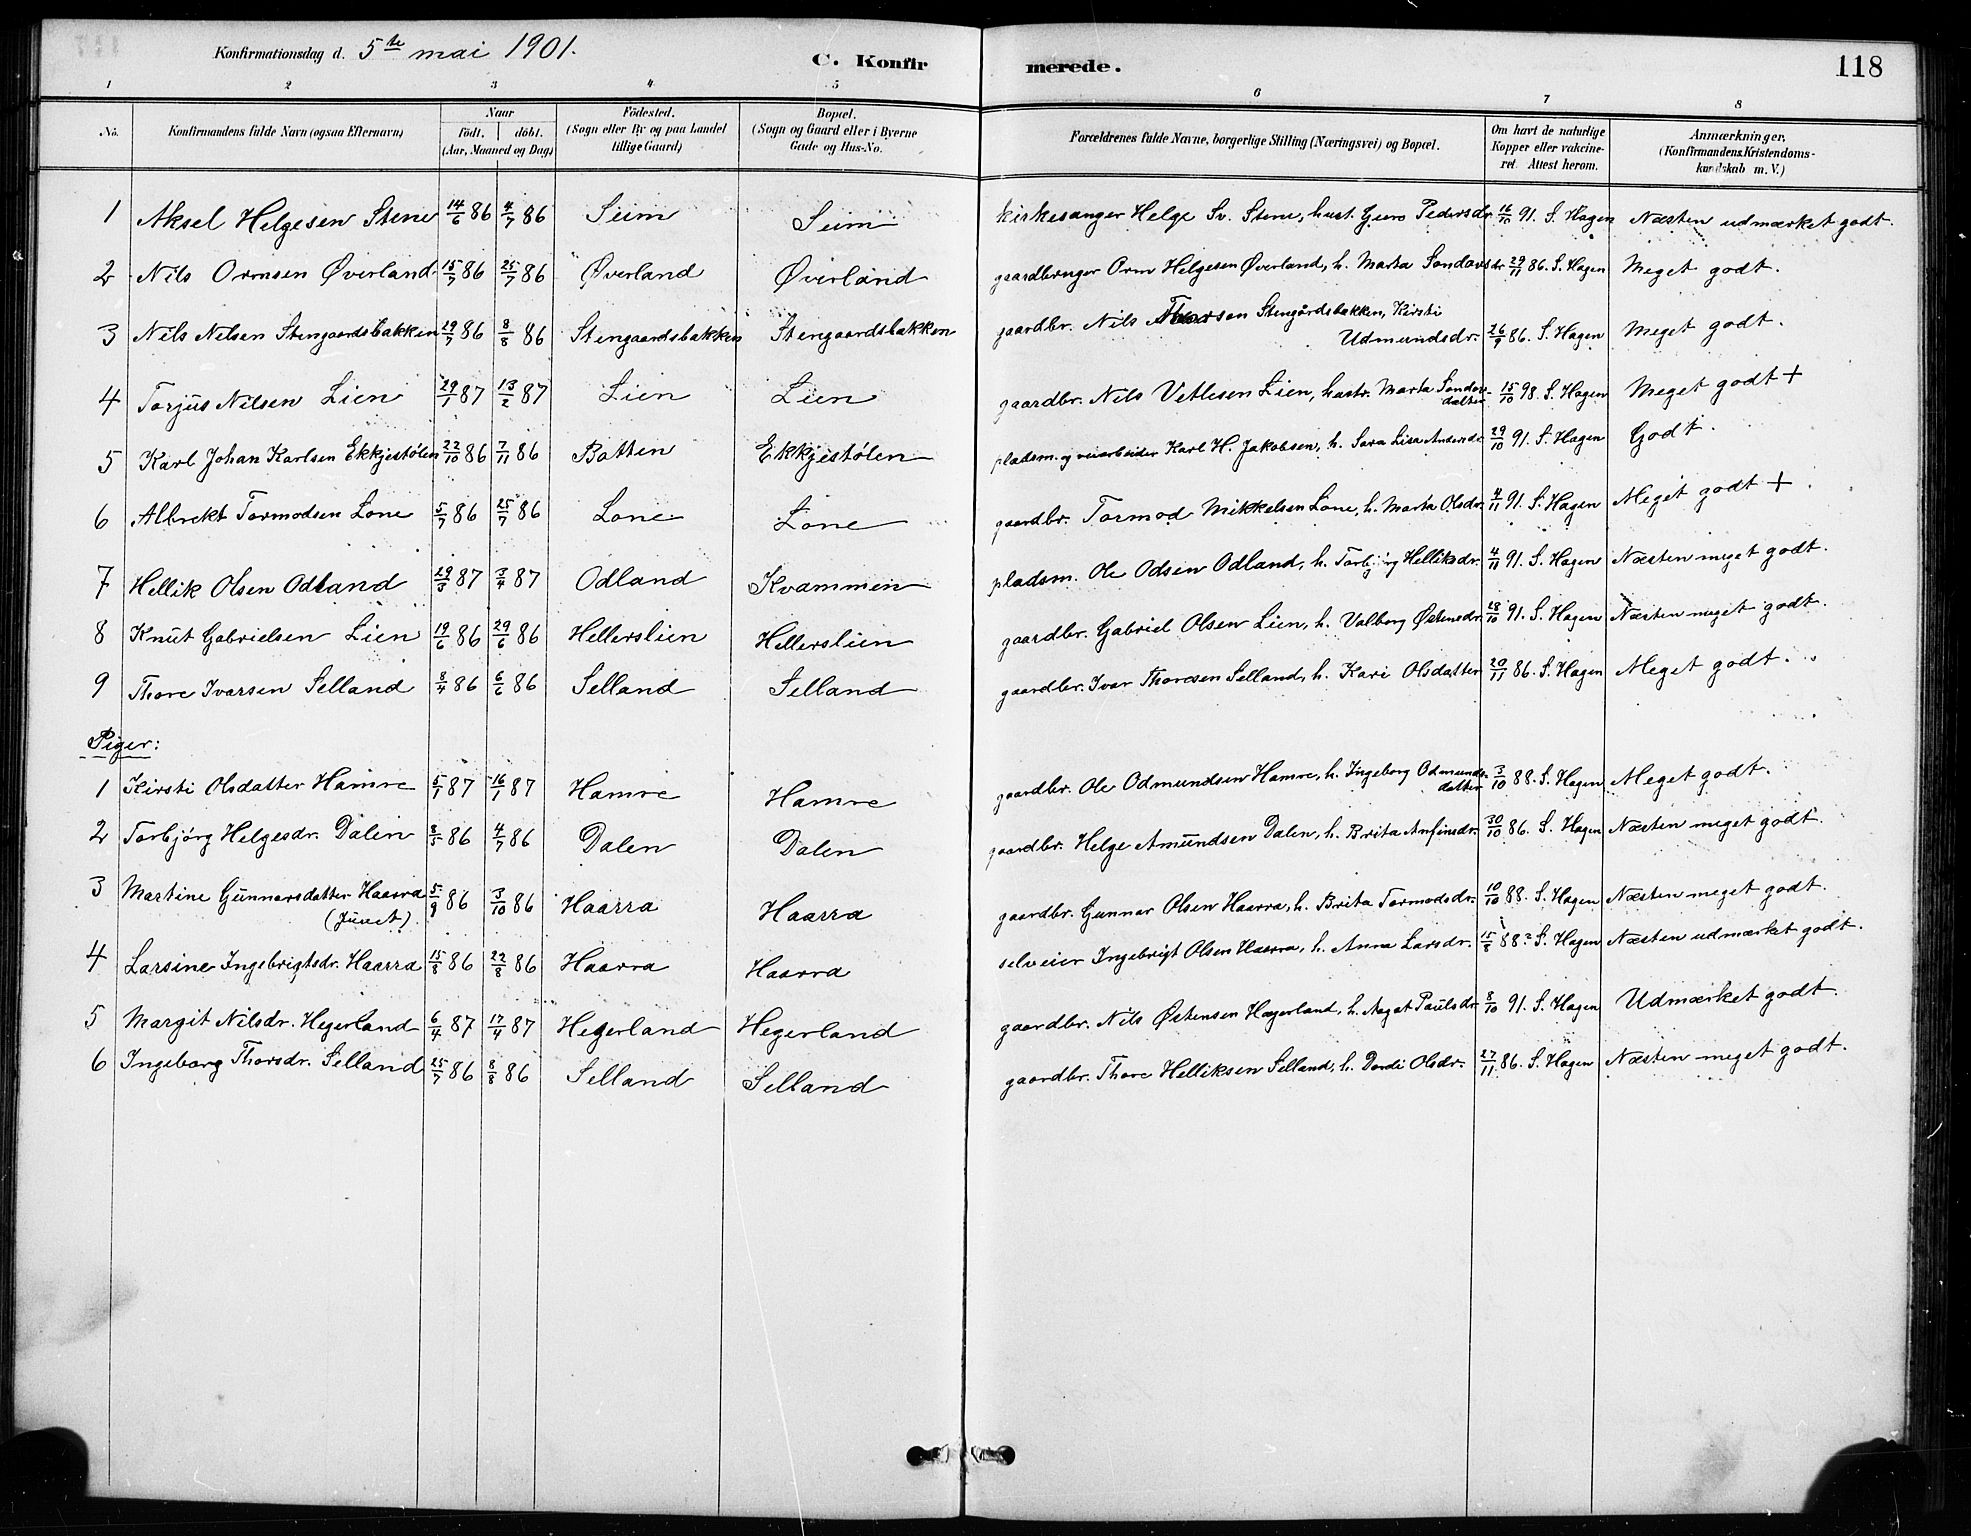 Konfirmationsdag d. 5te mai 1901.
C. Konfirmerede.
118
1 2 3 4 5 6 7 8
No. Konfirmandens fulde Navn (ogsaa Efternavn) Naar født. døbt. (Aar, Maaned og Dag) Födested. (Sogn eller By og paa Landet tillige Gaard) Bopæl. (Sogn og Gaard eller i Byerne Gade og Hus-No. Forældrenes fulde Navne, borgerlige Stilling (Næringsvei) og Bopæl. Om havt de naturlige Kopper eller vakcineret. Attest herom. Anmærkninger, (Konfirmandens Kristendomskundskab m. V.)
1 Aksel Helgesen Stene 14/6 86 4/7 86 Seim Seim kirkesanger Helge Sv. Stene, hust. Guro Pedersdr. 16/10 91. S. Hagen Næsten udmærket godt.
2 Nils Ormsen Øverland 15/7 86 25/7 86 Øverland Øverland gaardbruger Orm Helgesen Øverland, h. Marta Sondovsdr 29/11 86. S. Hagen Meget godt.
3 Nils Nelsen Stengaardsbakken 29/7 86 8/8 86 Stengaardsbakken Stengaardsbakken gaardbr. Nils Thorsen Stengårdsbakken, Kirsti
Udmundsdr. 26/9 86. S. Hagen Meget godt.
4 Torjus Nilsen Lien 29/1 87 13/2 87 Lien Lien gaardbr. Nils Vetlesen Lien, hustr. Marta Sondovsdatter 15/10 98. S. Hagen Meget godt +
5 Karl Johan Karlsen Ekkjestølen 22/10 86 7/11 86 Botten Ekkjestølen pladsm. og veiarbeider Karl H. Jakobsen, h. Sara Lisa Andersdr. 29/10 91. S. Hagen Godt.
6 Albrekt Tormodsen Lone 5/7 86 25/7 86 Lone Lone gaardbr. Tormod Mikkelsen Lone, h. Marta Olsdr. 4/11 91. S. Hagen Meget godt +.
7 Hellik Olsen Odland 29/3 87 3/4 87 Odland Kvammen pladsm. Ole Odsen Odland, h. Torbjørg Helliksdr. 4/11 91. S. Hagen Næsten meget godt.
8 Knut Gabrielsen Lien 19/6 86 29/6 86 Hellerslien Hellerslien gaardbr. Gabriel Olsen Lien, h. Valborg Østensdr. 28/10 91. S. Hagen Næsten meget godt.
9 Thore Ivarsen Selland 8/4 86 6/6 86 Selland Selland gaardbr. Ivar Thoresen Selland, h. Kari Olsdatter 20/11 86. S. Hagen Meget godt.
Piger:
1 Kirsti Olsdatter Hamre 5/1 87 16/1 87 Hamre Hamre gaardbr. Ole Odmundsen Hamre, h. Ingeborg Odmundsdatter 3/10 88. S. Hagen Meget godt.
2 Torbjørg Helgesdr. Dalen 8/5 86 4/7 86 Dalen Dalen gaardbr. Helge Amundsen Dalen, h. Brita Anfinsdr. 30/10 86. S. Hagen Næsten meget godt.
3 Martine Gunnarsdatter Haarra 5/9 86 3/10 86 Haarra Haarra gaardbr. Gunnar Olsen Haarra, h. Brita Tormodsdr. 10/10 88. S. Hagen Næsten meget godt.
(Juvet)
4 Larsine Ingebrigtsdr. Haarra 15/8 86 22/8 86 Haarra Haarra selveier Ingebrigt Olsen Haarra, h. Anna Larsdr. 15/8 88? S. Hagen Næsten udmærket godt.
5 Margit Nilsdr. Hegerland 6/4 87 17/4 87 Hegerland Hegerland gaardbr. Nils Østensen Hægerland, h. Aagot Paulsdr. 8/10 91. S. Hagen Udmærket godt.
6 Ingeborg Thorsdr. Selland 25/7 86 8/8 86 Selland Selland gaardbr. Thore Helliksen Selland, h. Dordi Olsdr. 27/11 86. S. Hagen Næsten meget godt.